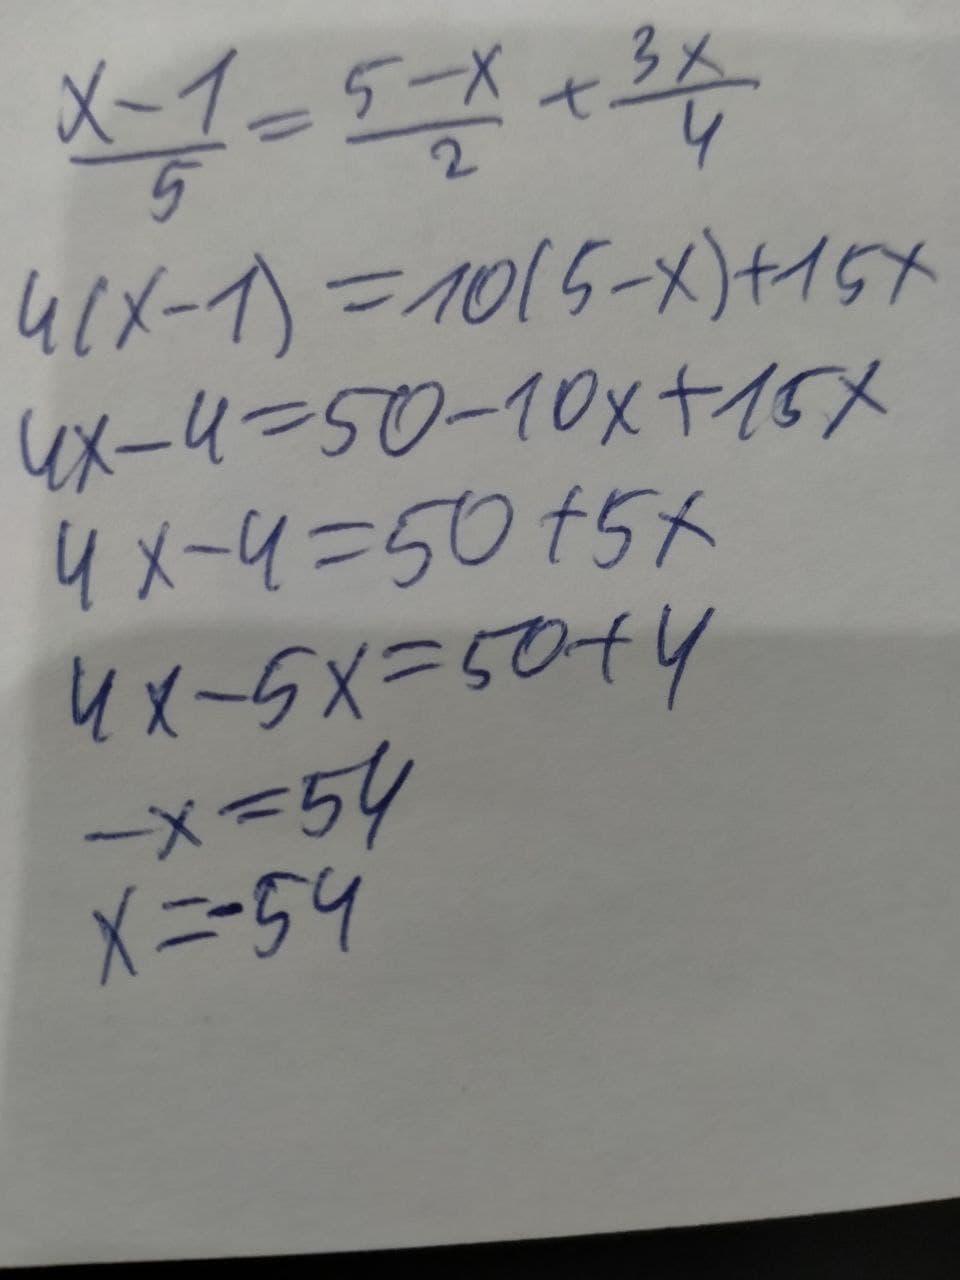 x-1/5 = 5-x/2 + 3x/4
4(x-1) = 10(5-x)+15x
4x-4=50-10x+15x
4x-4=50+5x
4x-5x=50+4
-x=54
x=-54